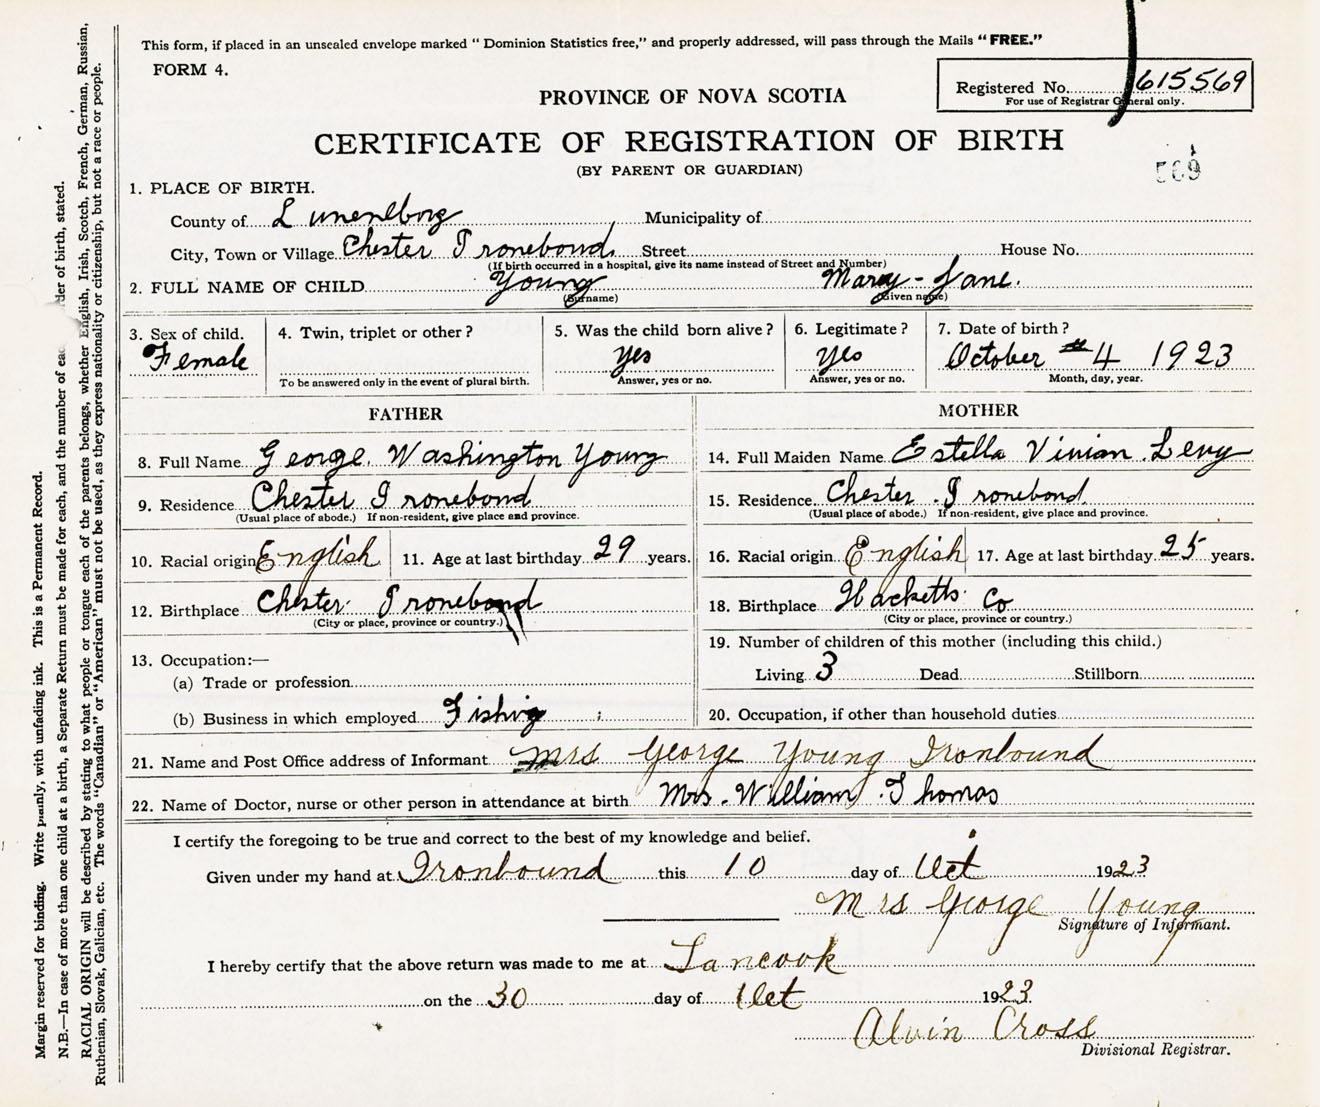 This form, if placed in an unsealed envelope marked "Dominion Statistics free," and properly addressed, will pass through the Mails "FREE."
FORM 4.
Registered No. 615569
For use of Registrar General only.
PROVINCE OF NOVA SCOTIA
CERTIFICATE OF REGISTRATION OF BIRTH
(BY PARENT OR GUARDIAN)
569
1. PLACE OF BIRTH.
County of Lunenlborg Municipality of
City, Town or Village Chester Ironebond. Street House No.
(If birth occurred in a hospital, give its name instead of Street and Number)
2. FULL NAME OF CHILD Young Marey-Jane.
(Surname) (Given name)
3. Sex of child. Female
4. Twin, triplet or other?
To be answered only in the event of plural birth.
5. Was the child born alive? yes
Answer, yes or no.
6. Legitimate? yes
Answer, yes or no.
7. Date of birth? October 4 1923
Month, day, year.
FATHER
8. Full Name George. Washington Young
9. Residence Chester Ironebond
(Usual place of abode.) If non-resident, give place and province.
10. Racial origin English
11. Age at last birthday 29 years.
12. Birthplace Chester Ironebond
(City or place, province or country.)
13. Occupation:—
(a) Trade or profession
(b) Business in which employed Fishig
MOTHER
14. Full Maiden Name Estella Vinian Levy
15. Residence Chester Ironebond
(Usual place of abode.) If non-resident, give place and province.
16. Racial origin English
17. Age at last birthday 25 years.
18. Birthplace Hacketts Co
(City or place, province or country.)
19. Number of children of this mother (including this child.)
Living 3 Dead Stillborn
20. Occupation, if other than household duties
21. Name and Post Office address of Informant Mrs George Young Ironbound
22. Name of Doctor, nurse or other person in attendance at birth Mrs. William Thomas
I certify the foregoing to be true and correct to the best of my knowledge and belief.
Given under my hand at Ironbound this 10 day of Oct 1923
Mrs George Young
Signature of Informant.
I hereby certify that the above return was made to me at Tancook
on the 30 day of Oct 1923
Alvin Cross
Divisional Registrar.
Margin reserved for binding. Write plainly, with unfading ink. This is a Permanent Record.
N.B.—In case of more than one child at a birth, a Separate Return must be made for each, and the number of eac der of birth, stated.
RACIAL ORIGIN will be described by stating to what people or tongue each of the parents belongs, whether English, Irish, Scotch, French, German, Russian,
Ruthenian, Slovak, Galician, etc. The words "Canadian" or "American" must not be used, as they express nationality or citizenship, but not a race or people.